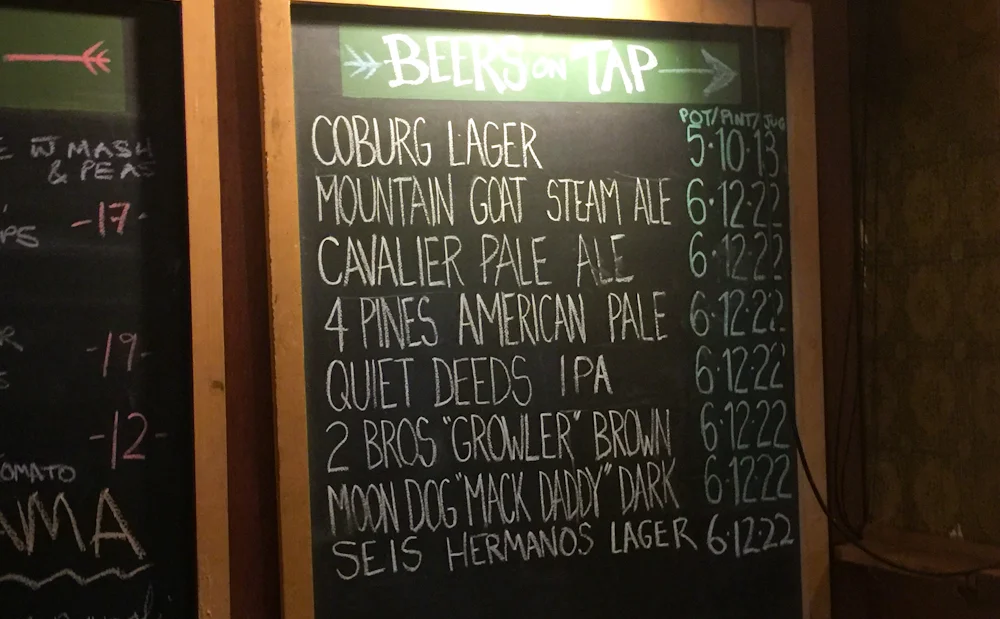 W MASH
& PEAS
-17-
-19-
-12-
BEERS ON TAP
POT/PINT/JUG
COBURG LAGER 5·10·13
MOUNTAIN GOAT STEAM ALE 6·12·22
CAVALIER PALE ALE 6·12·22
4 PINES AMERICAN PALE 6·12·22
QUIET DEEDS IPA 6·12·22
2 BROS "GROWLER" BROWN 6·12·22
MOON DOG "MACK DADDY" DARK 6·12·22
SEIS HERMANOS LAGER 6·12·22